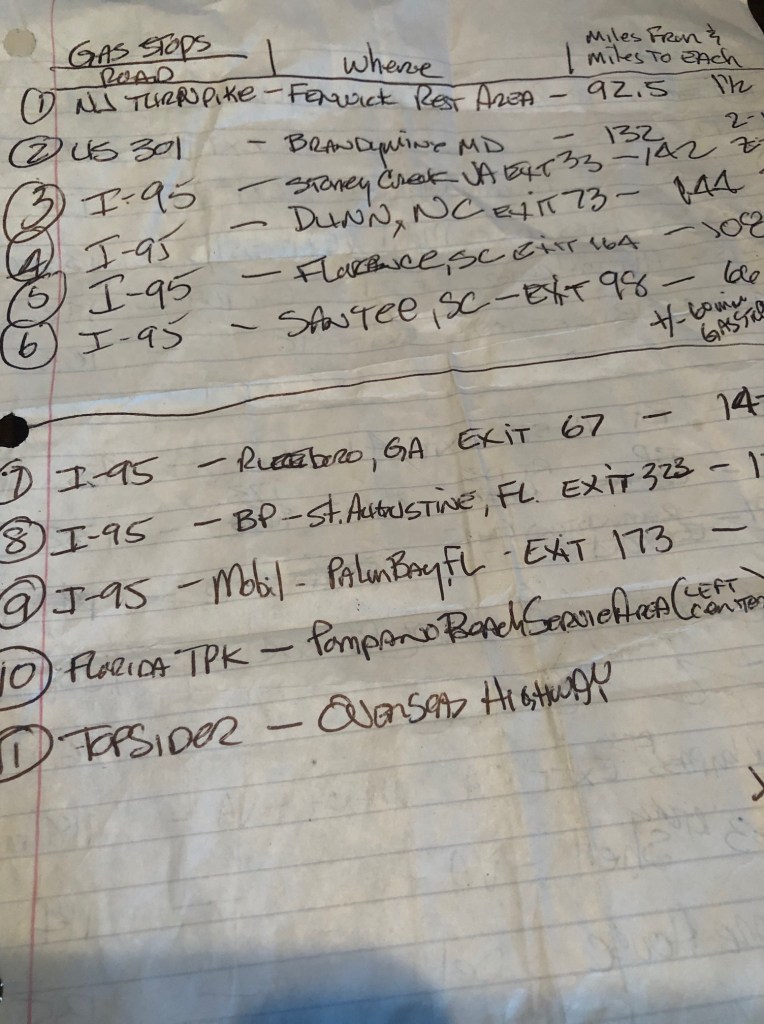 GAS STOPS | Where | Miles From &
ROAD Miles To Each
① NJ TURNPIKE - FENWICK REST AREA - 92.5
② US 301 - BRANDYWINE MD - 132
③ I-95 - Stoney Creek VA EXIT 33 - 142
④ I-95 - DUNN, NC EXIT 73 - 144
⑤ I-95 - FLORENCE, SC EXIT 164 - 108
⑥ I-95 - SANTEE, SC - EXIT 98 - 66
+/- 60 min
7 I-95 - GA EXIT 67 - 14
⑧ I-95 - BP - St. AUGUSTINE, FL. EXIT 323 - 1
⑨ I-95 - Mobil - PALM BAY, FL - EXIT 173 -
10 FLORIDA TPK - POMPANO BEACH SERVICE AREA (LEFT
CENTER
11 TOPSIDER - OVERSEAS HIGHWAY